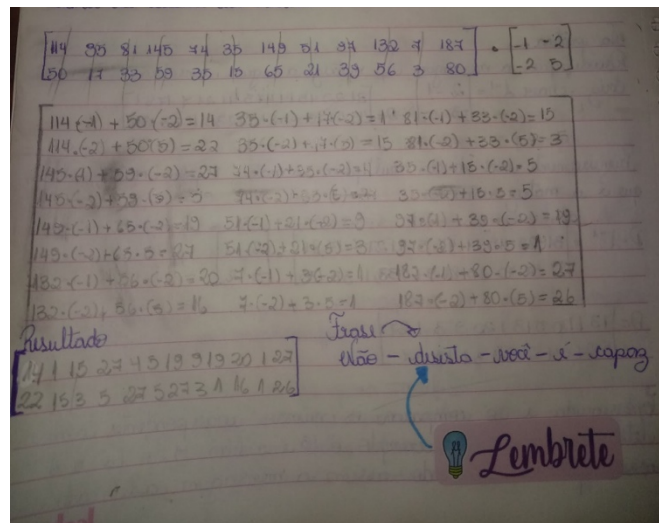 114 35 81 145 74 35 149 51 97 132 7 187 · -1 -2
50 17 33 59 35 15 65 21 39 56 3 80 -2 5
114·(-1) + 50·(-2)=14 35·(-1)+17(-2)=1 81·(-1)+33·(-2)=15
114·(-2) + 50(5)=22 35·(-2)+17·(5)=15 81·(-2)+33·(5)=3
145·(1)+59·(-2)=27 74·(-1)+35·(-2)=4 35·(1)+15·(-2)=5
145·(-2)+59·(5)=5 35·(-2)+15·5=5
149·(-1)+65·(-2)=19 51(-1)+21·(-2)=9 97·(1)+39·(-2)=19
149·(-2)+65·5=27 51(-2)+21·(5)=3 97·(-2)+139·5=1
132·(-1)+56·(-2)=20 7·(-1)+3(-2)=1 187·(-1)+80·(-2)=27
132·(-2)+56·(5)=16 7·(-2)+3·5=1 187·(-2)+80·(5)=26
Resultado
14 1 15 27 4 5 19 9 19 20 1 27
22 15 3 5 27 5 27 3 1 16 1 26
Frase
Não - desista - você - é - capaz
Lembrete